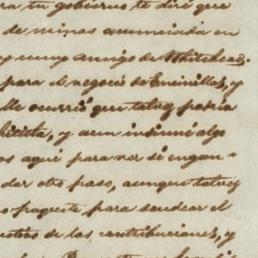 ra tu gobierno te diré que
de minas anunciada en
y muy amigo de Whitehead.
para el negocio de Encinillas, y
le ocurrió que talvez podria
y aun insinuó algo
os aqui para ver si engan-
dar otro paso, aunque talvez
no paquete para sondear el
de las contribuciones, y